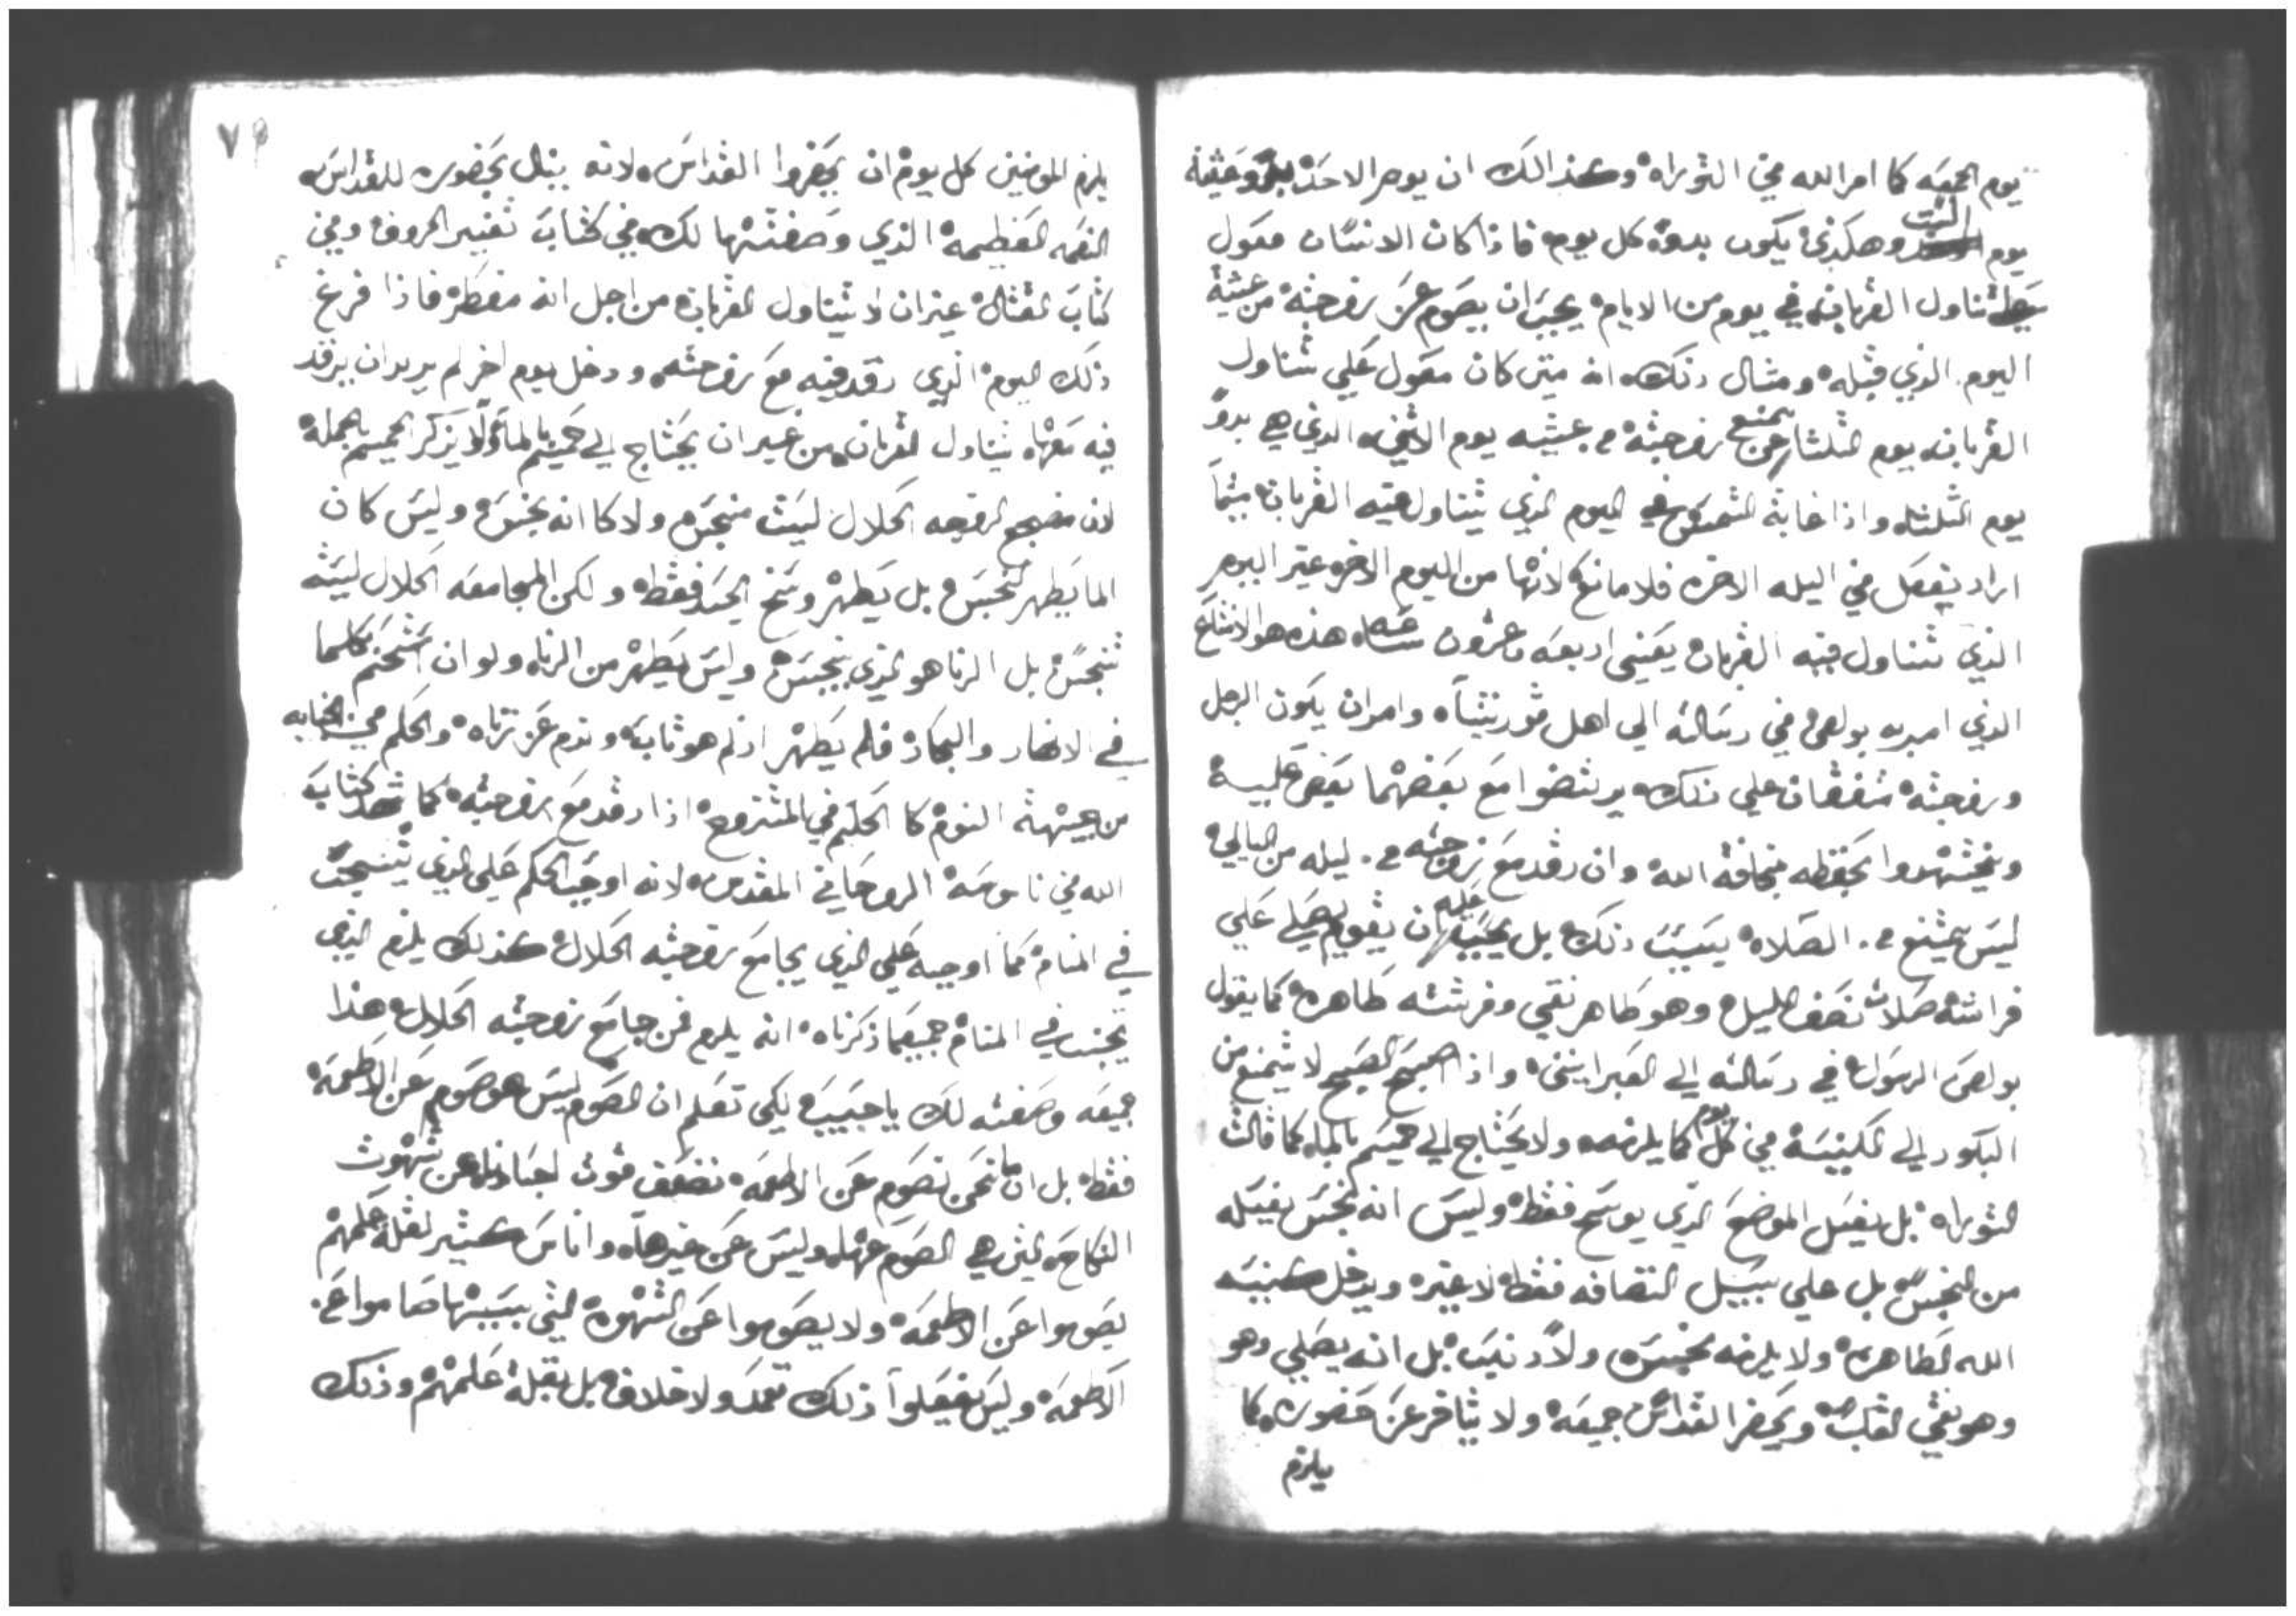 يوم الجمعه كما امر الله في التوراه وكذالك ان يوم الاحد بدو عشية
يوم السبت وهكذي يكون بدوه كل يوم فاذا كان الانسان معول
تناول القربان في يوم من الايام يجب ان يصوم عن زوجته من عشية
اليوم الذي قبله ومثال ذلك انه متى كان معول علي تناول
القربان يوم الثلثا يمتنع عن زوجته عشيه يوم الاثنين الذي هي بدو
يوم الثلثا واذا غابة الشمس في اليوم الذي يتناول فيه القربان
اراد يفعل في اليله الاخره فلا مانع لانها من اليوم الاخر غير اليوم
الذي تناول فيه القربان يعني اربعه وعشرون ساعه هذه هو الامتناع
الذي امر به بولص في رسالته الي اهل قورنتيا وامر ان يكون الرجل
وزوجته متفقان علي ذلك يرتضوا مع بعضهما بعض عليه
ويجتهدوا بحفظه بمخافة الله وان رقد مع زوجته ليله من اليالي
ليس يمتنع الصلاه بسبب ذلك بل يجب عليه ان يقوم يصلي علي
فراشه صلات نصف اليل وهو طاهر نقي وفرشته طاهره كما يقول
بولص الرسول في رسالته الي العبرانيين واذا اصبح الصبح لا يمتنع من
البكور الي الكنيسة في كل يوم كما يلزمه ولا يحتاج الي حميم بالماء كما قالت
التوراه بل يغسل الموضع الذي يوسخ فقط وليس انه نجس يغسله
من النجس بل علي سبيل النضافه فقط لا غير ويدخل كنيسه
الله الطاهره ولا يلزمه نجس ولا دنس بل انه يصلي وهو
وهو نقي القلب ويحضر القداس جميعه ولا يتاخر عن حضوره كما
يلزم
٧٩
يلزم المومنين كل يوم ان يحضروا القداس لانه ينال بحضوره للقداس
النعمه العظيمه الذي وصفتها لك في كتاب تفسير الحروف وفي
كتاب غير ان لا يتناول القربان من اجل انه مفطر فاذا فرغ
ذلك اليوم الذي رقد فيه مع زوجته ودخل يوم اخر لم يريد ان يرقد
فيه معها يتناول القربان من غير ان يحتاج الي حميم بالماء ولا يذكر الحميم بالجمله
لان مضجع الزوجه الحلال ليست منجس ولا كان انه نجس وليس كان
الما يطهر نجس بل يطهر وسخ الجسد فقط ولكن المجامعه الحلال ليسه
تنجس بل الزنا هو الذي ينجس وليس يطهر من الزنا ولو ان استحم كلما
في الانهار والبحار فلم يطهر اذ لم هو تاب وندم عن زناه والحكم في الجنابه
من جيهة النوم كا الحكم في المتزوج اذا رقد مع زوجته كما شهد كتاب
الله في ناموسه الروحاني المقدس لانه اوجب الحكم علي الذي يتنجس
في المنام كما اوجبه علي الذي يجامع زوجته الحلال كذلك يلزم الذي
يجنب في المنام جميعما ذكرناه انه يلزم من جامع زوجته الحلال هذا
جميعه وصفته لك يا حبيب لكي تعلم ان الصوم ليس هو صوم عن الاطعمه
فقط بل انما نحن نصوم عن الاطعمه نضعف قوت اجسادنا عن شهوت
النكاح التي هي الصوم عنها وليس عن غيرها واناس كثير لقلة علمهم
يصوموا عن الاطعمه ولا يصوموا عن الشهوه التي بسببها صاموا عن
الاطعمه وليس يفعلوا ذلك تعمد ولا خلاف بل بقلة علمهم وذلك